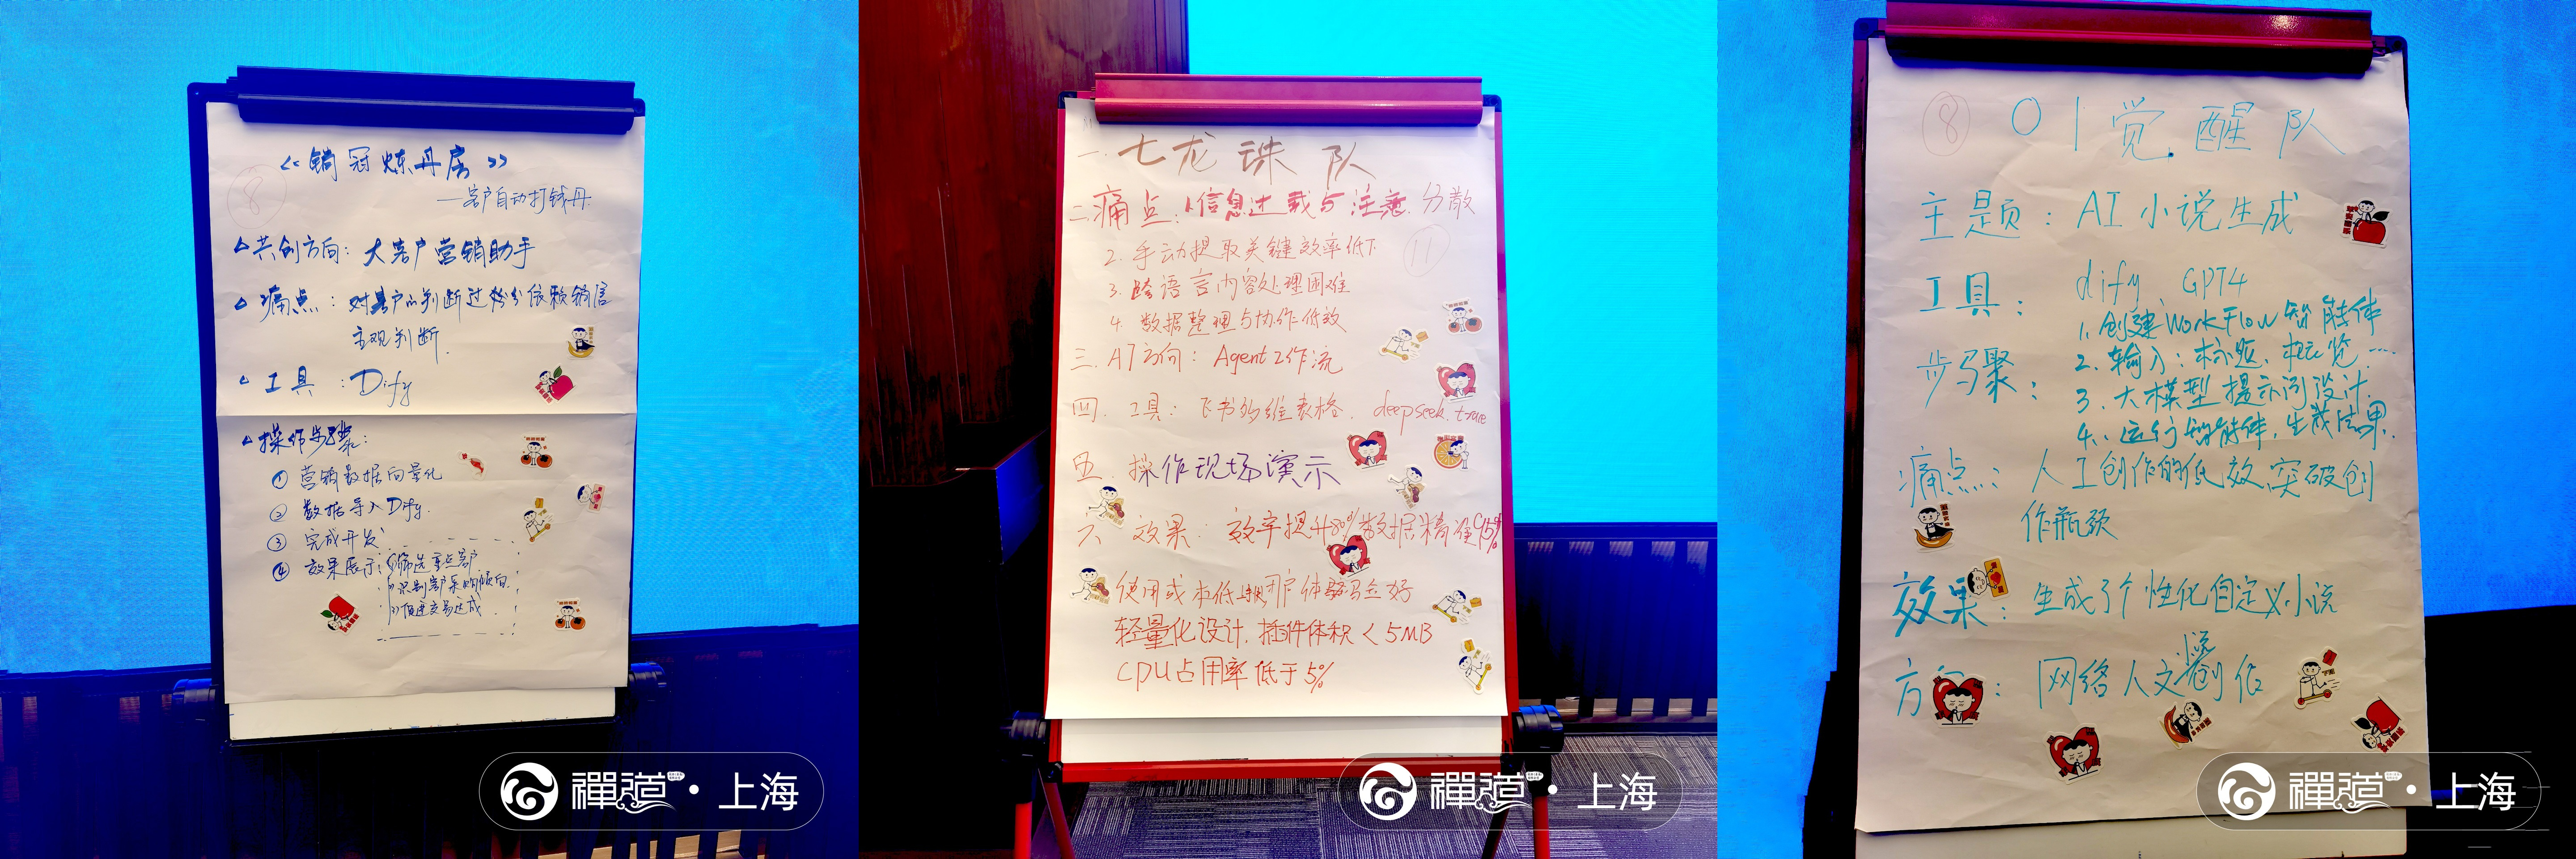 《销冠炼丹房》
8
—客户自动打钱丹
共创方向：大客户营销助手
痛点：对客户的判断过分依赖销售
主观判断.
工具：Dify
操作步骤：
① 营销数据向量化
② 数据导入Dify.
③ 完成开发
④ 效果展示：①筛选重点客户
②识别客户采购倾向
③促进交易达成
禅道·上海
一. 七龙珠队
二.痛点：1.信息过载与注意分散
2. 手动提取关键效率低下
11
3. 跨语言内容处理困难
4. 数据整理与协作低效
三. AI方向：Agent工作流
四. 工具：飞书多维表格. deepseek. trae
五. 操作现场演示
六 效果：效率提升80% 数据精准95%
使用成本低 用户体验好
轻量化设计. 插件体积<5MB
CPU占用率低于5%
禅道·上海
8
01觉醒队
主题：AI小说生成
工具：dify、GPT4
步骤：
1. 创建WorkFlow智能体
2. 输入：标题、概览…
3. 大模型提示词设计.
4. 运行智能体, 生成结果.
痛点：人工创作的低效, 突破创
作瓶颈
效果：生成了个性化自定义小说
小说
方向：网络人文创作
禅道·上海